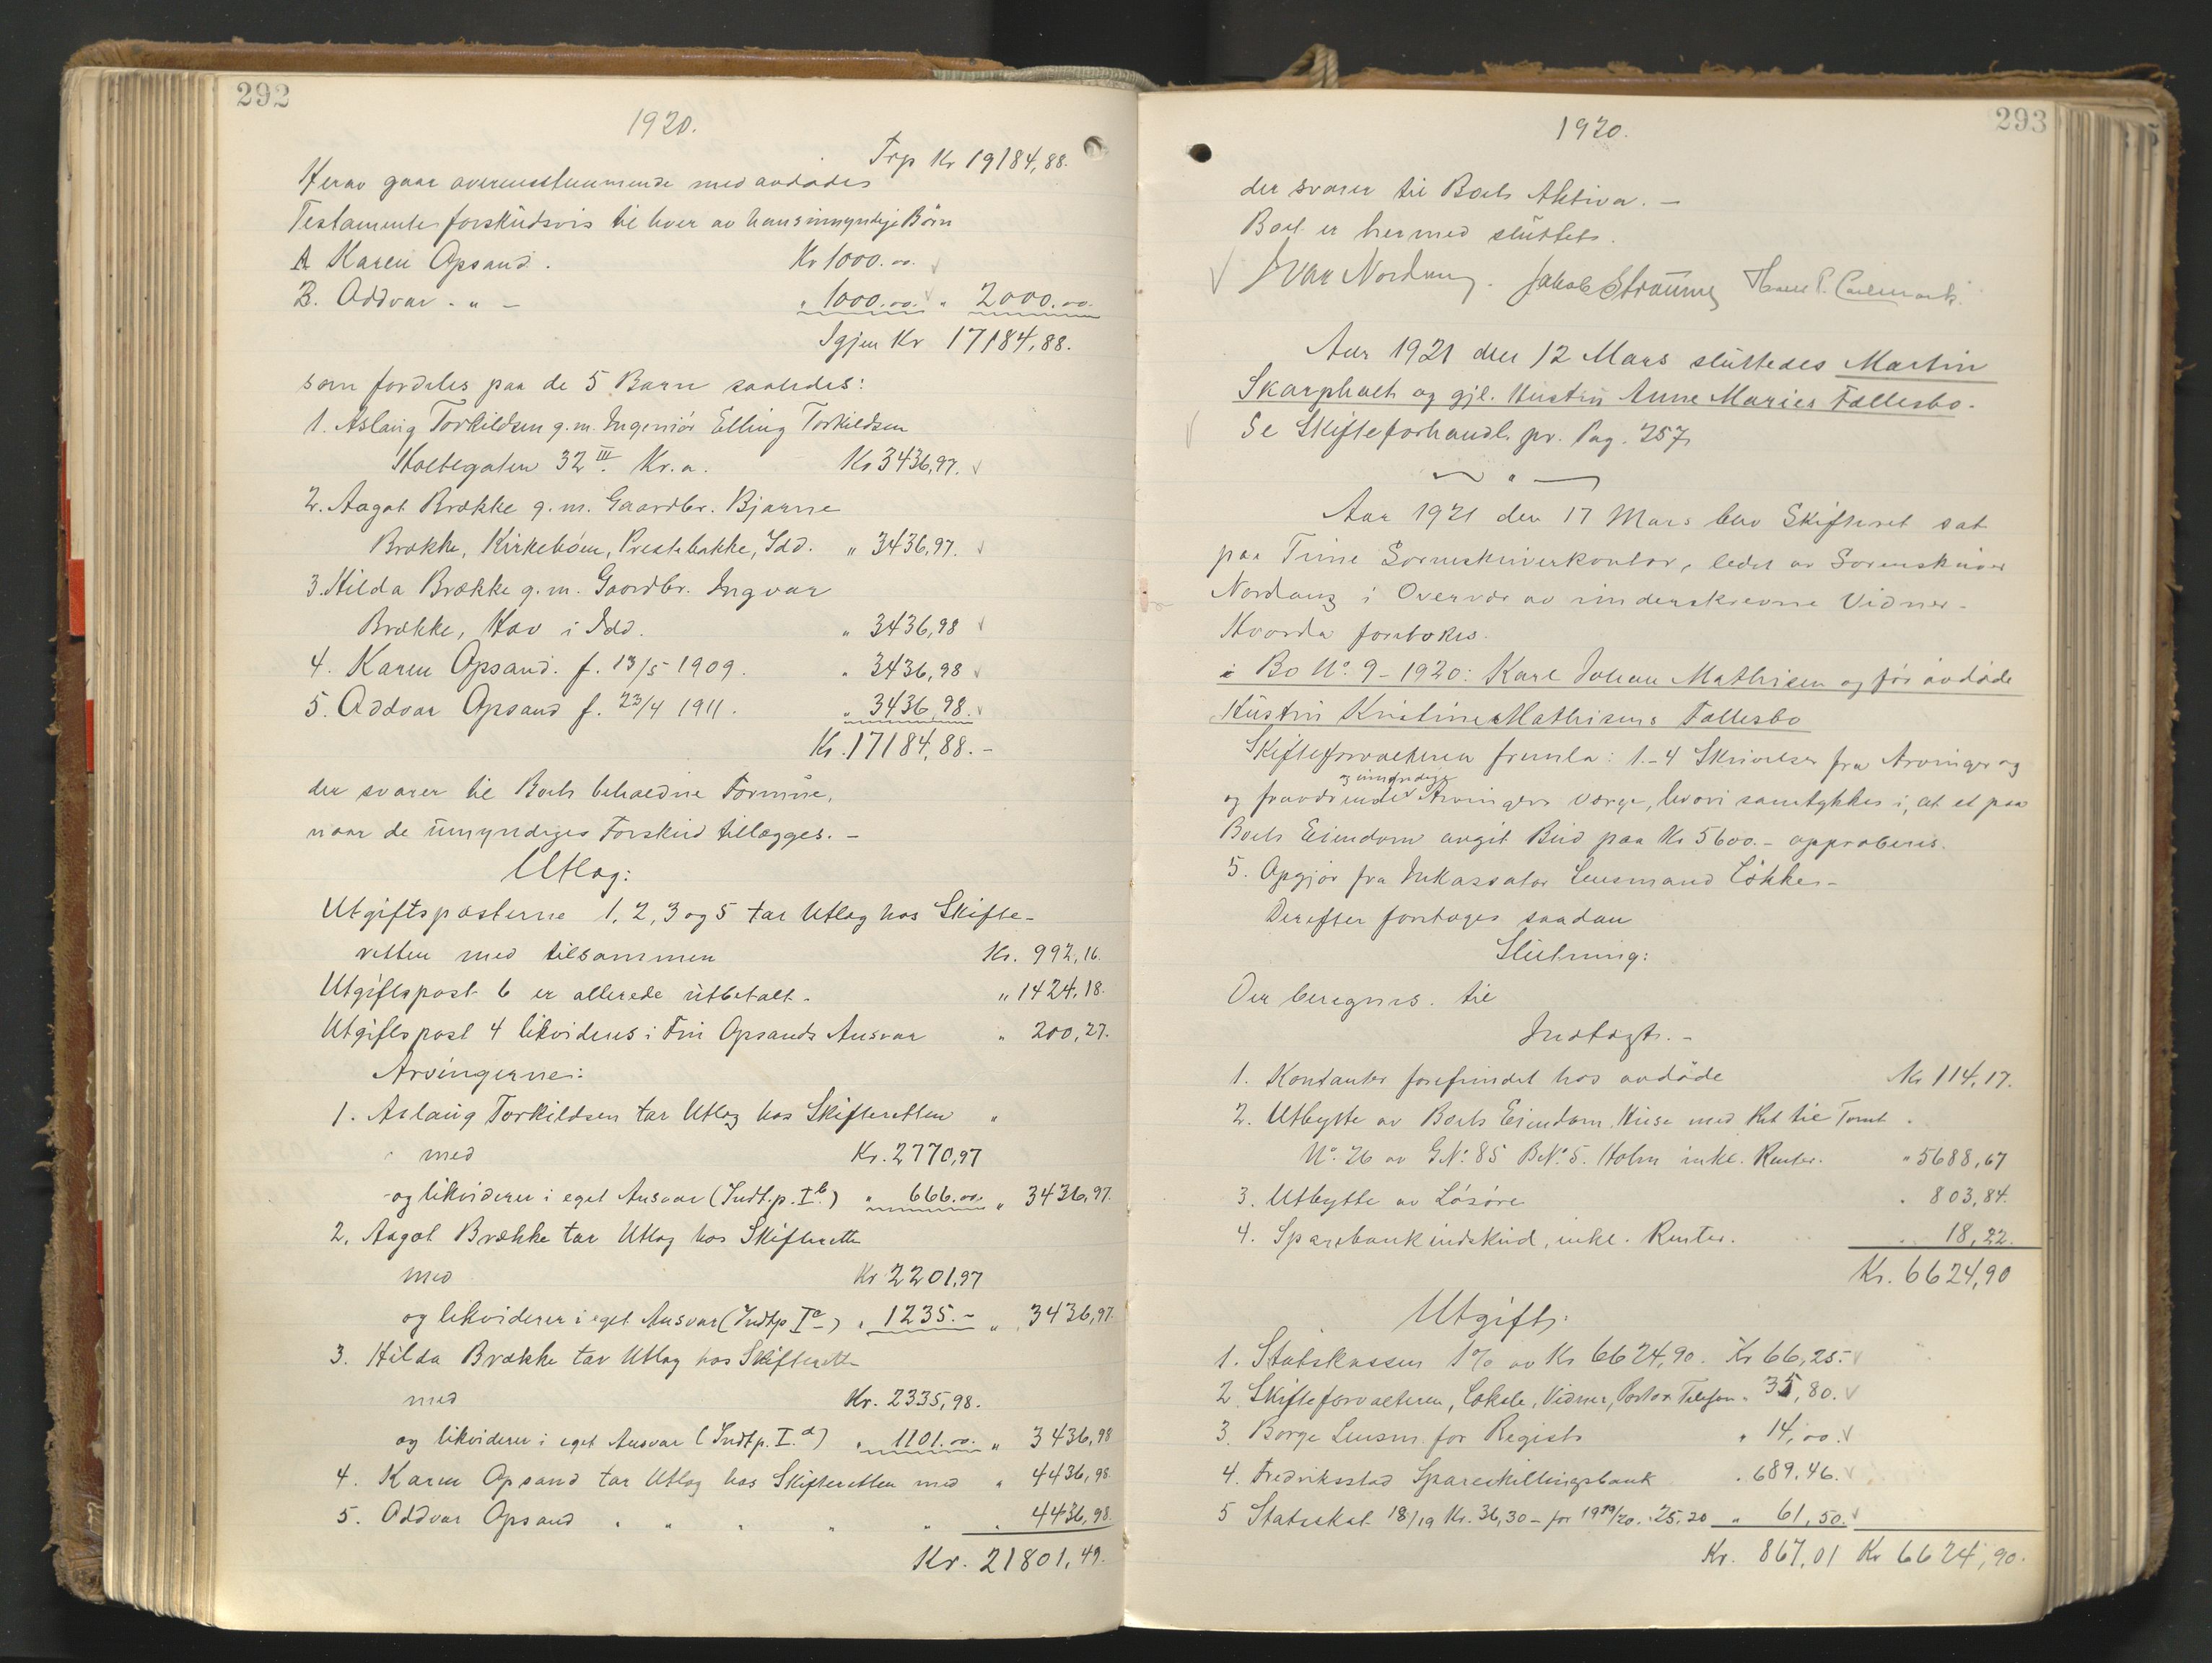 292
1920.
Trp Kr 19184,88.
Herav gaar overensstemmende med avdødes
Testamente forskudsvis til hver av hans umyndige Børn
A Karen Opsand. Kr 1000.00
B. Oddvar - " - " 1000.00 " 2000.00
Igjen Kr 17184,88.
som fordeles paa de 5 Barn saaledes:
1. Aslaug Torkildsen g.m. Ingeniør Elling Torkildsen
Holtegaten 32 III. Kr.a. Kr 3436,97.
2. Aagot Brække g.m. Gaardbr. Bjarne
Brække, Kirkebøen, Prestebakke, Idd. " 3436,97.
3. Hilda Brække g.m. Gaardbr. Ingvar
Brække, Hov i Idd. " 3436,98
4. Karen Opsand. f. 13/5 1909. " 3436,98
5. Oddvar Opsand f. 23/4 1911. " 3436,98.
Kr. 17184,88. -
der svarer til Boets beholdne Formue,
naar de umyndiges Forskud tillægges. -
Utlæg:
Utgiftsposterne 1, 2, 3 og 5 tar Utlæg hos Skifte-
retten med tilsammen Kr. 992,16.
Utgiftspost 6 er allerede utbetalt. " 1424,18.
Utgiftspost 4 likvideres i Fru Opsands Ansvar " 200,27.
Arvingerne:
1. Aslaug Torkildsen tar Utlæg hos Skifteretten "
med Kr. 2770,97
og likviderer i eget Ansvar (Indt.p. I b.) " 666.00 " 3436,97.
2. Aagot Brække tar Utlæg hos Skifteretten
med Kr 2201,97
og likviderer i eget Ansvar (Indtp I c) " 1235.- " 3436,97.
3. Hilda Brække tar Utlæg hos Skifteretten
med Kr. 2335,98.
og likviderer i eget Ansvar (Indt.p. I. d) " 1101.00. " 3436,98
4. Karen Opsand tar Utlæg hos Skifteretten med " 4436,98
5. Oddvar Opsand " " " " " " 4436,98.
Kr. 21801,49.
293
1920.
der svarer til Boets Aktiva. -
Boet er hermed sluttet.
Ivar Nordang. Jakob Straume Hans P.
Aar 1921 den 12 Mars sluttedes Martin
Skarpholt og gjl. Hustru Anne Maries Fællesbo.
Se Skifteforhandl. pr. Pag. 257.
Aar 1921 den 17 Mars blev Skifteret sat
paa Tune Sorenskriverkontor, ledet av Sorenskriver
Nordang i Overvær av underskrevne Vidner.
Hvorda foretokes.
i Bo No. 9 - 1920: Karl Johan Mathisen og før avdøde
Hustru Kristine Mathisens Fællesbo
Skifteforvalteren fremla: 1.-4 Skrivelser fra Arvinger og
og umyndige
og fraværende Arvingers Værge, hvori samtykkes i, at et paa
Boets Eiendom avgit Bud paa Kr 5600.- approberes.
5. Opgjør fra Inkassator Lensmand Løkke.-
Derefter foretages saadan
Slutning:
Der beregnes til
Indtægt. -
1. Kontanter forefundet hos avdøde Kr 114,17.
2. Utbytte av Boets Eiendom, Huse med Ret til Tomt "
No. 26 av G.No. 85 B.No. 5. Holm inkl. Renter. " 5688,67
3. Utbytte av Løsøre " 803,84.
4. Sparebankindskud, inkl. Renter. " 18,22.
Kr. 6624,90
Utgift:
1. Statskassen 1% av Kr 6624,90. Kr 66,25.-
2. Skifteforvalteren, Lokale, Vidner, Porto & Telefon " 35,80.
3. Borge Lensm. for Registr " 14,00.
4. Fredriksstad Spareskillingsbank " 689.46.
5 Statsskat 18/19 Kr. 36,30 - for 1919/20. 25.20 " 61,50.
Kr. 867,01 Kr 6624,90.